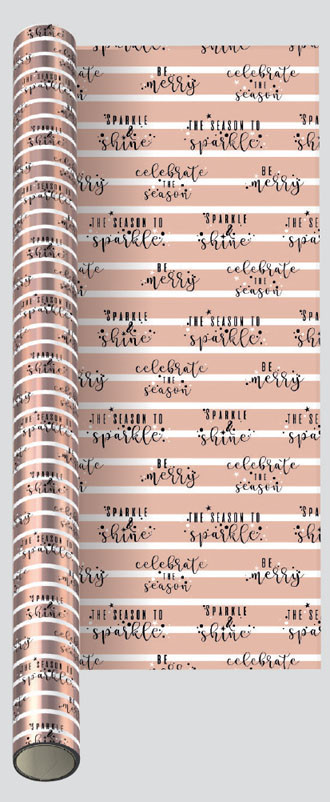 sparkle.
BE
merry
celebrate
THE
season
SPARKLE
&
shine
THE SEASON TO
sparkle.
celebrate
THE
season
BE
merry
THE SEASON TO
sparkle.
SPARKLE
&
shine
BE
merry
celebrate
THE
season
SPARKLE
&
shine
THE SEASON TO
sparkle.
celebrate
THE
season
BE
merry
THE SEASON TO
sparkle.
SPARKLE
&
shine
BE
merry
celebrate
THE
season
SPARKLE
&
shine
THE SEASON TO
sparkle.
celebrate
THE
season
BE
merry
THE SEASON TO
sparkle.
SPARKLE
&
shine
BE
celebrate